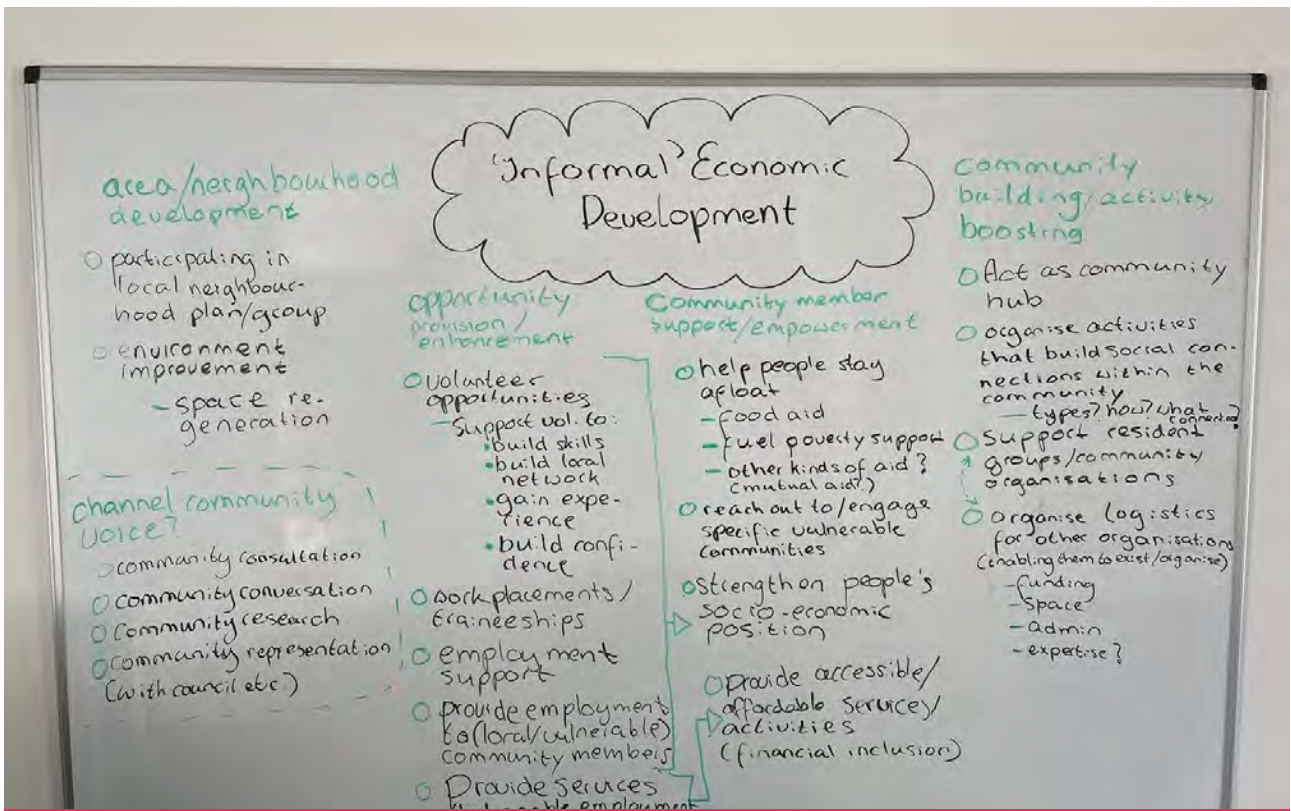 'Informal' Economic
Development
area/neighbourhood
development
participating in
local neighbour-
hood plan/group
environment
improvement
- space re-
generation
channel community
voice?
community consultation
community conversation
community research
community representation
(with council etc.)
opportunity
provision/
enhancement
volunteer
opportunities
- Support vol. to:
• build skills
• build local
network
• gain expe-
rience
• build confi-
dence
work placements/
traineeships
employment
support
provide employment
to (local/vulnerable)
community members
Provide services
employment
Community member
support/empowerment
help people stay
afloat
- food aid
- fuel poverty support
- other kinds of aid?
(mutual aid?)
reach out to/engage
specific vulnerable
communities
strengthen people's
socio-economic
position
provide accessible/
affordable services/
activities
(financial inclusion)
community
building/activity
boosting
Act as community
hub
organise activities
that build social con-
nections within the
community
- types? how? what connected?
Support resident
groups/community
organisations
organise logistics
for other organisations
(enabling them to exist/organise)
- funding
- space
- admin
- expertise?